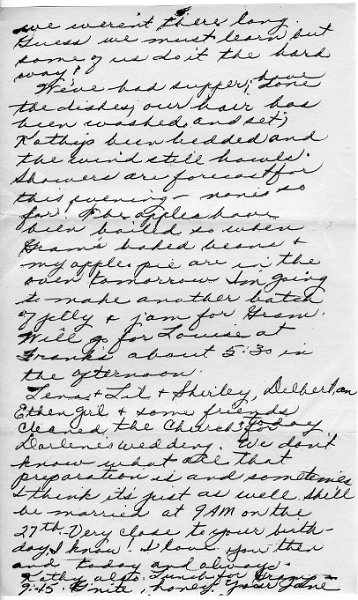 we weren't there long.
Guess we must learn but
some of us do it the hard
way!
We've had supper, have done
the dishes, our hair has
been washed and set,
Kathy's been bedded and
the wind still howls.
Showers are forecast for
this evening - none is so
far. The apples have
been boiled so when
Gram's baked beans &
my apple pie are in the
oven tomorrow I'm going
to make another batch
of jelly & jam for Gram.
Will go for Louise at
Frank's about 5:30 in
the afternoon.
Lena & Lil & Shirley, Delbert, an
Ethen girl & some friends
cleaned the Church today for
Darlene's wedding. We don't
know what all that
preparation is and sometimes
I think it's just as well. She'll
be married at 9 AM on the
27th. Very close to your birth-
day, I know! I love you then
and today and always.
Kathy also. Lunch for Gram -
9:45. G'nite, honey, your